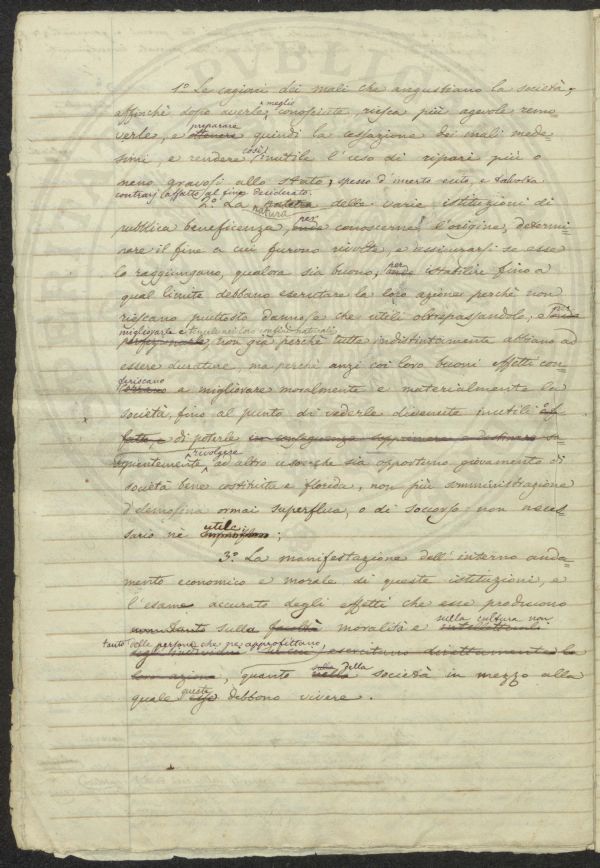 1º Le cagioni dei mali che angustiano la società,
affinchè dopo averle meglio conosciute, riesca più agevole remo-
verle, e preparare ottenere quindi la cessazione dei mali mede-
simi, e rendere così inutile l'uso di ripari più o
meno gravosi allo stato, spesso d'incerto esito, e talvolta
contrarj affatto al fine desiderato;
2º La natura delle varie istituzioni di
pubblica beneficenza, per conoscerne l'origine, determi-
nare il fine a cui furono rivolte, e assicurarsi se esse
lo raggiungano, qualora sia buono; per istabilire fino a
qual limite debbano esercitare la loro azione perchè non
riescano piuttosto dannose che utili oltrepassandolo, e
migliorarle e tenerle nei loro confini naturali
perfezionarle non già perchè tutte indistintamente abbiano ad
essere durature, ma perchè anzi coi loro buoni effetti con-
feriscano a migliorare moralmente e materialmente la
società, fino al punto di vederle divenute inutili af-
fatto, e di poterle in conseguenza sopprimere o destinare
quentemente rivolgere ad altro uso che sia opportuno giovamento di
società bene costituita e florida, non più somministrazione
d'elemosina ormai superflua, o di soccorso non neces-
sario nè utile;
3º La manifestazione dell'interno anda-
mento economico e morale di queste istituzioni, e
l'esame accurato degli effetti che esse producono
sulla facoltà moralità e sulla cultura non intellettuali
tanto delle persone che ne approfittano,
degli individui su cui esercitano direttamente la
loro azione, quanto della società in mezzo alla
quale queste esse debbono vivere.